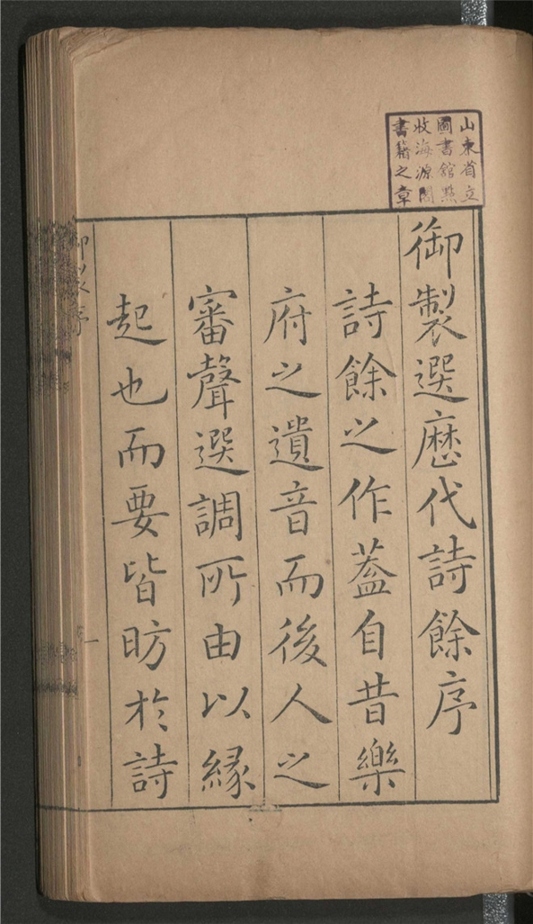 山東省立
圖書館點
收海源閣
書籍之章
御製選歷代詩餘序
詩餘之作蓋自昔樂
府之遺音而後人之
審聲選調所由以緣
起也而要皆昉於詩
御製序
一